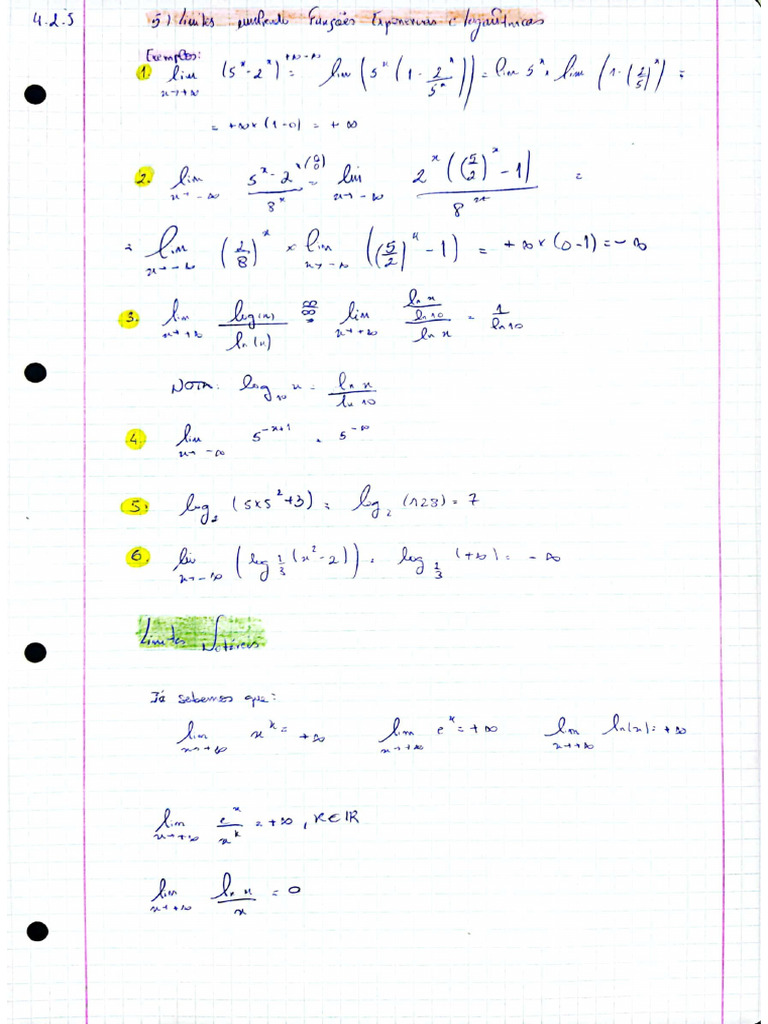 4.2.5
5) Limites envolvendo Funções Exponenciais e logarítmicas
Exemplos:
1. lim x→+∞ (5^x - 2^x) =^{+∞-∞} lim (5^x (1 - 2^x/5^x)) = lim 5^x × lim (1 - (2/5)^x) =
= +∞ × (1-0) = +∞
2. lim x→-∞ (5^x - 2^x)/8^x =^{(0/0)} lim x→-∞ 2^x ((5/2)^x - 1)/8^x =
= lim x→-∞ (2/8)^x × lim x→-∞ ((5/2)^x - 1) = +∞ × (0-1) = -∞
3. lim x→+∞ log(x)/ln(x) =^{∞/∞} lim x→+∞ (ln x/ln 10)/ln x = 1/ln 10
NOTA: log_10 x = ln x/ln 10
4. lim x→-∞ 5^{-x+1} = 5^{-∞}
5. log_2 (5×5^2+3) = log_2 (128) = 7
6. lim x→-∞ (log_{1/3} (x^2-2)) = log_{1/3} (+∞) = -∞
Limites Notáveis
Já sabemos que:
lim x→+∞ x^k = +∞ lim x→+∞ e^x = +∞ lim x→+∞ ln(x) = +∞
lim x→+∞ e^x/x^k = +∞, K∈IR
lim x→+∞ ln x/x = 0